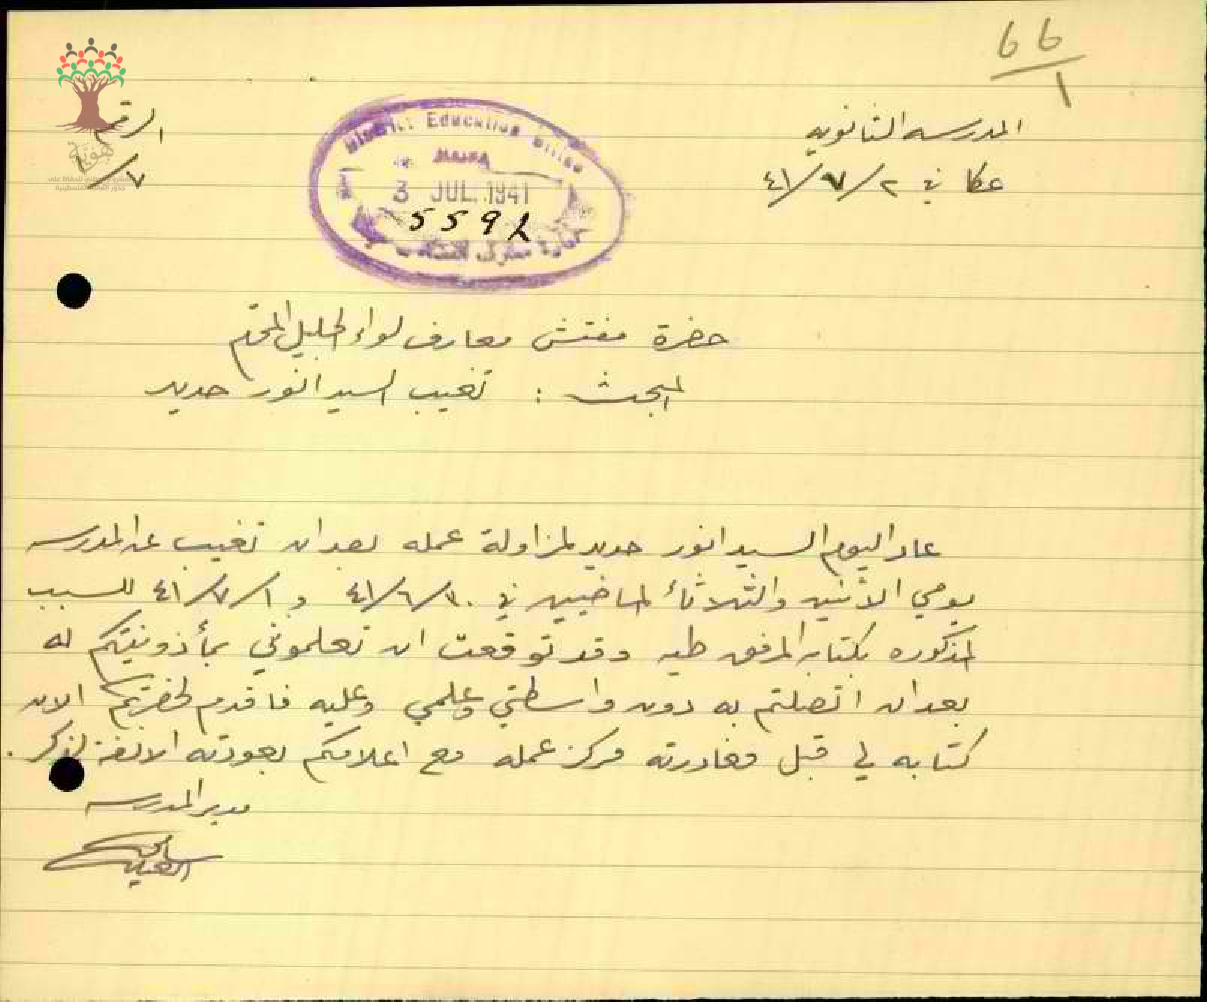 66
1
المدرسه الثانويه
الرقم
عكا في ٢/٧/٤١
١/٧
District Education Office
HAIFA
3 JUL 1941
5592
حضرة مفتش معارف لواء الجليل المحترم
المبحث : تغيب السيد انور حديد
عاد اليوم السيد انور حديد لمزاولة عمله بعد ان تغيب عن المدرسه
يومي الاثنين والثلاثاء الماضيين في ٣٠/٦/٤١ و ١/٧/٤١ للسبب
المذكوره بكتابه المرفق طيه وقد توقعت ان تعلموني بمأذونيتكم له
بعد ان اتصلتم به دون واسطتي وعلمي وعليه فاقدم لحضرتكم الان
كتابه لي قبل مغادرته مركز عمله مع اعلامكم بعودته الانفة الذكر .
مدير المدرسه